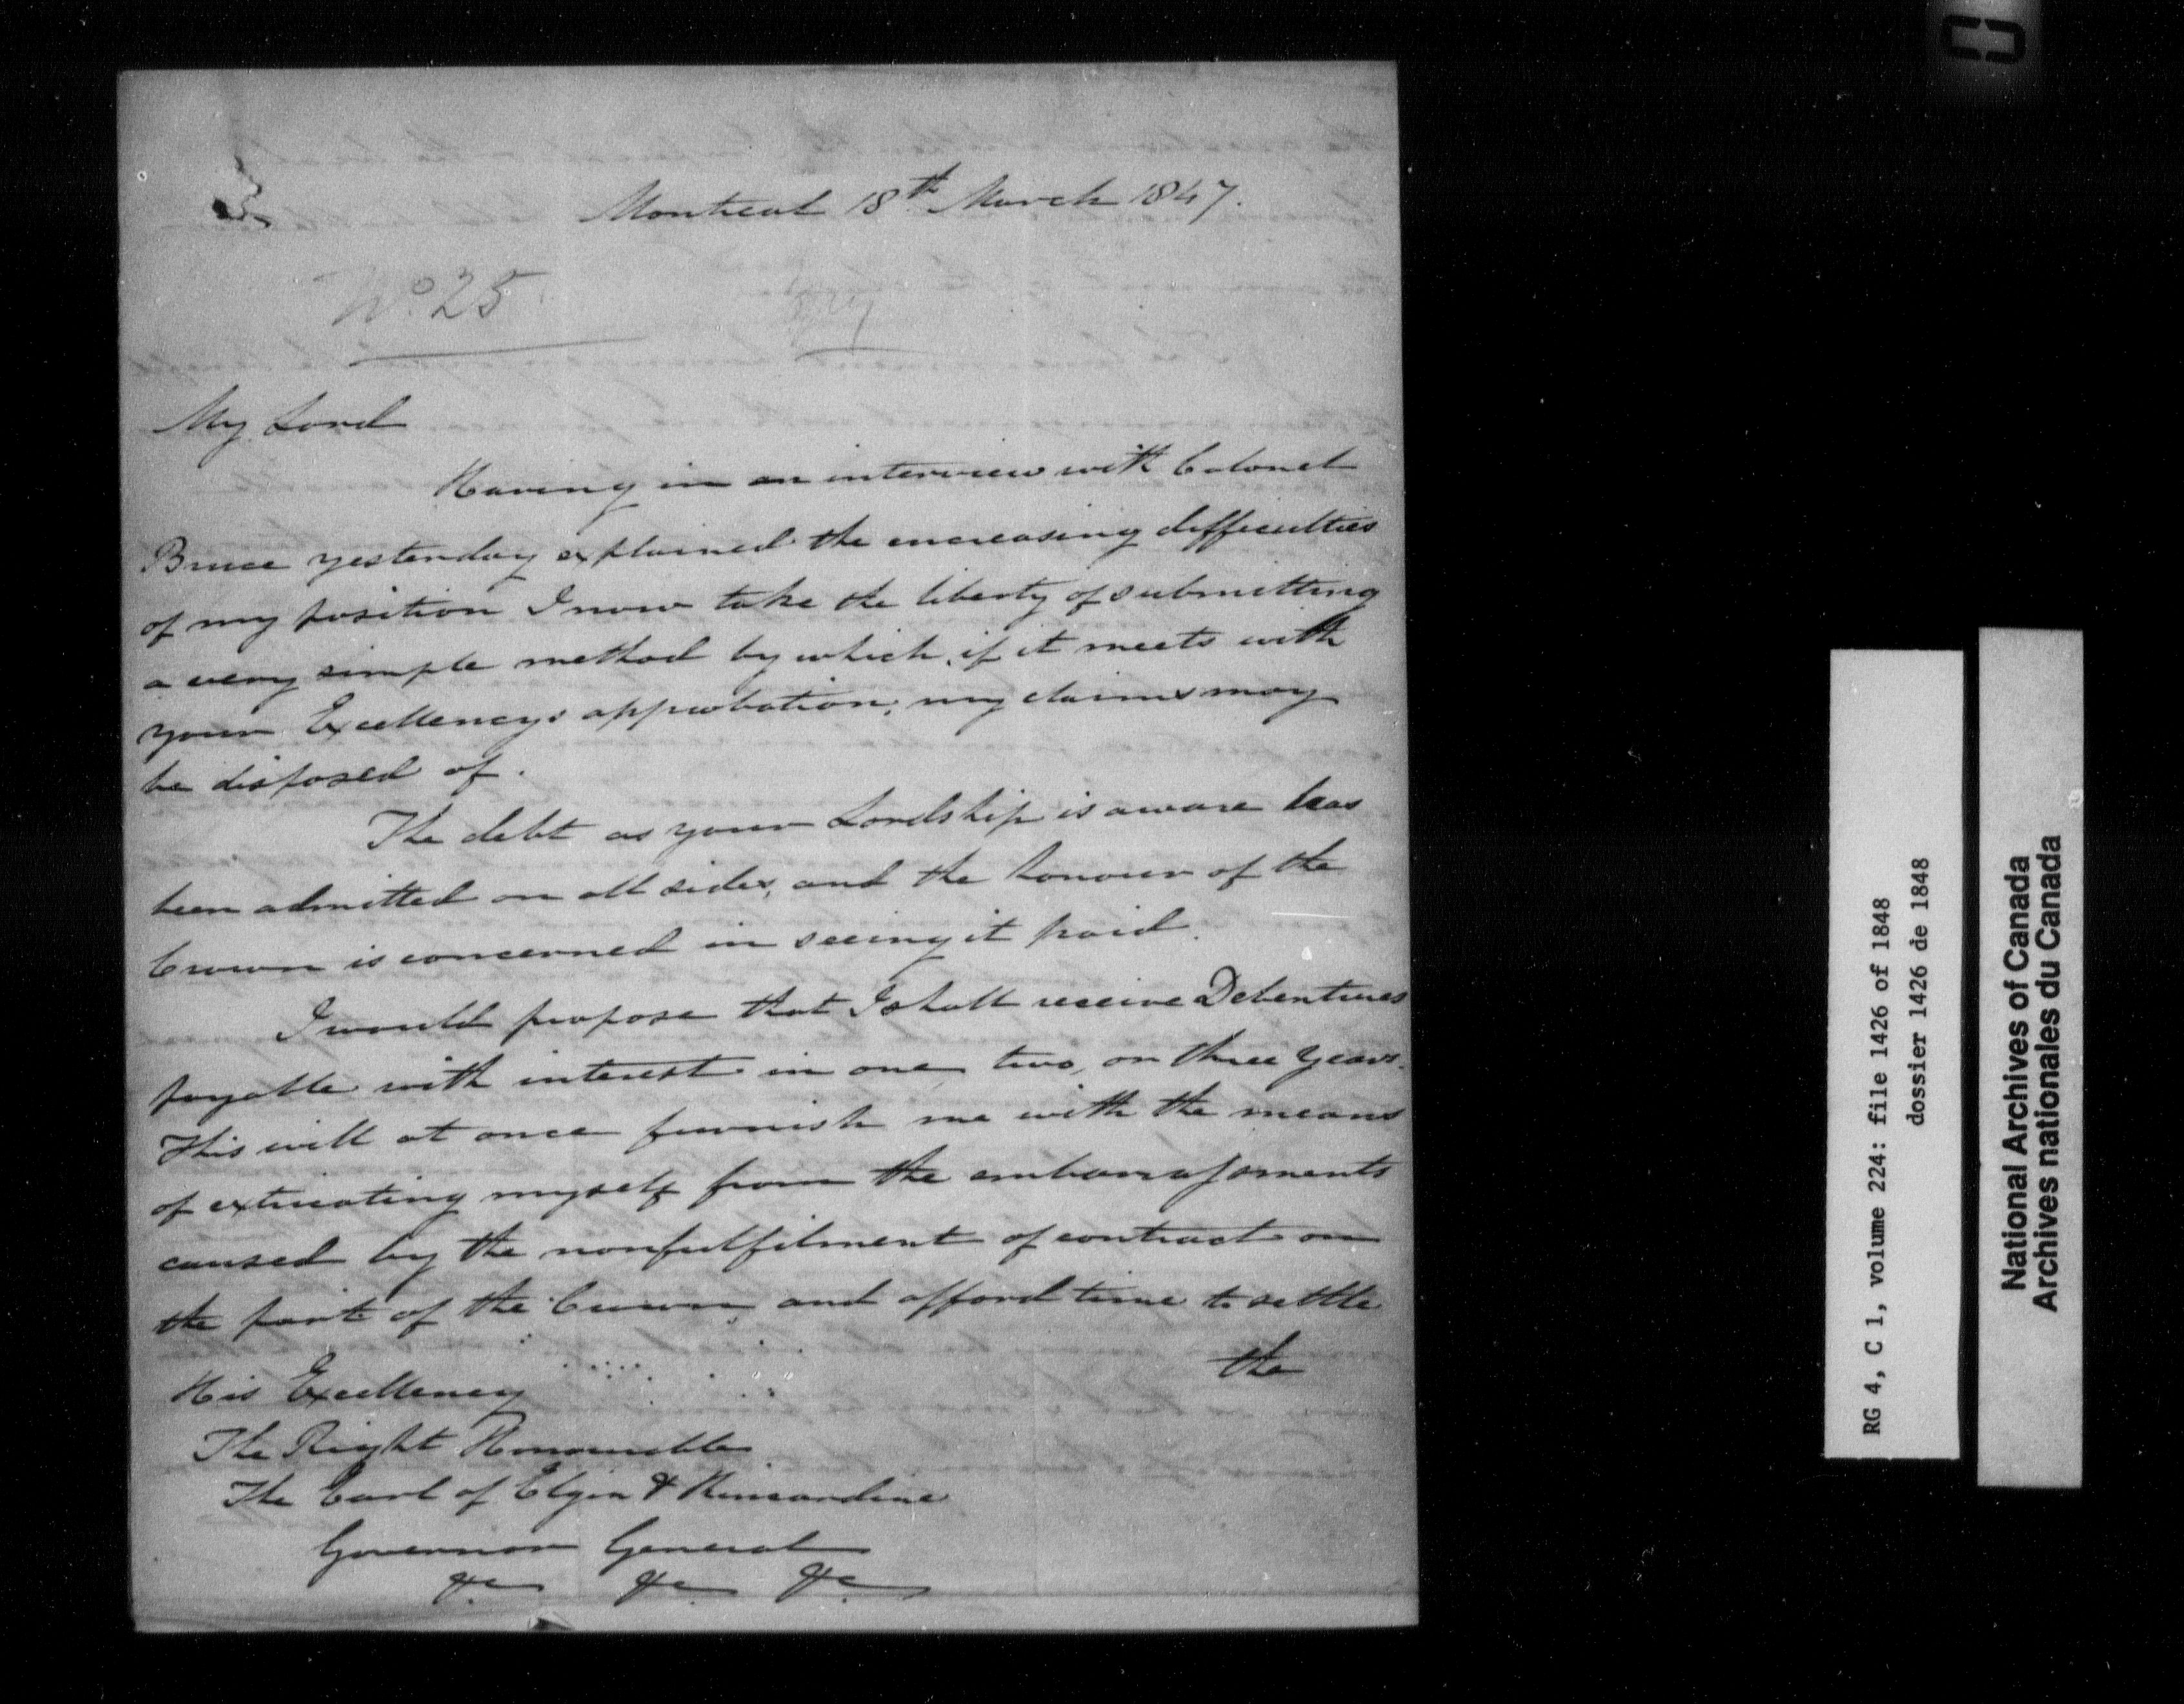 Montreal 18th March 1847.
No. 25
My Lord
Having in an interview with Colonel
Bruce yesterday explained the encreasing difficulties
of my position I now take the liberty of submitting
a very simple method by which, if it meets with
your Excellencys approbation, my claims may
be disposed of.
The debt as your Lordship is aware has
been admitted on all sides, and the honour of the
Crown is concerned in seeing it paid.
I would propose that I shall receive Debentures
payable with interest in one, two, or three years.
This will at once furnish me with the means
of extricating myself from the embarrassments
caused by the nonfulfilment of contract on
the part of the Crown, and afford time to settle
the
His Excellency
The Right Honourable
The Earl of Elgin & Kincardine
Governor General
&c. &c. &c.
RG 4, C 1, volume 224: file 1426 of 1848
dossier 1426 de 1848
National Archives of Canada
Archives nationales du Canada